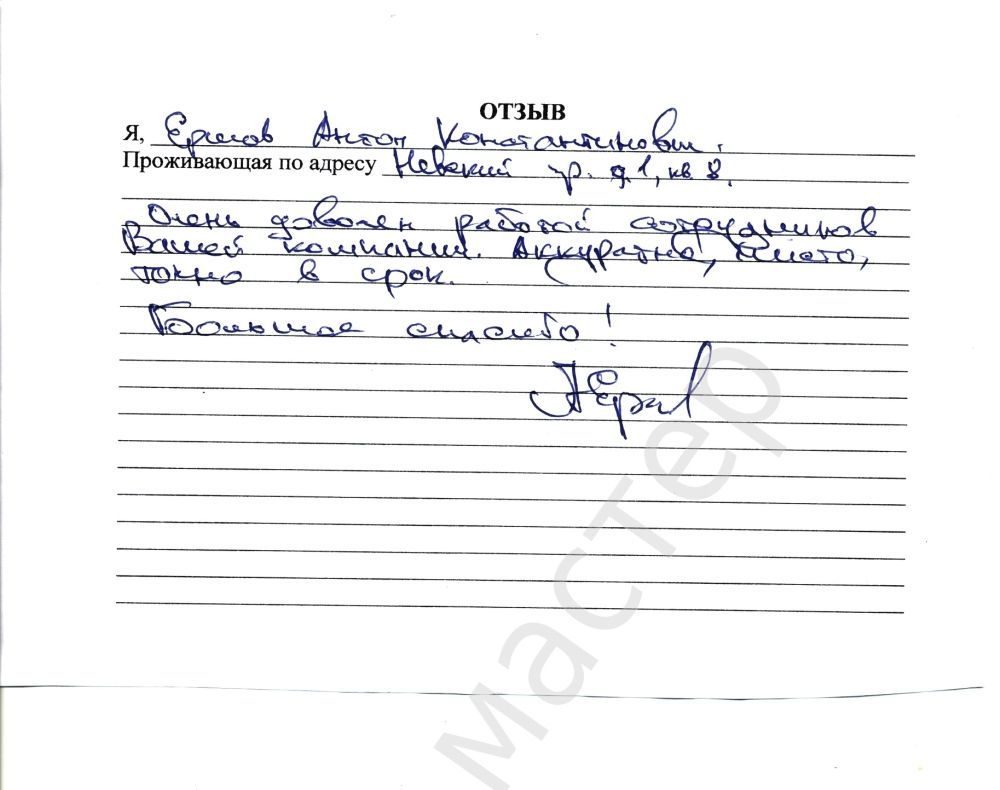 ОТЗЫВ
Я, Ершов Антон Константинович.
Проживающая по адресу Невский пр. д 1, кв 8.
Очень доволен работой сотрудников
Вашей компании. Аккуратно, чисто,
точно в срок.
Большое спасибо!
мастер